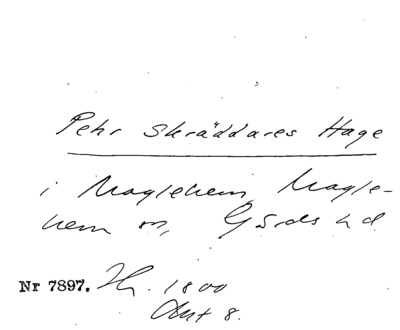 Pehr Skräddares Hage
i Maglehem, Magle-
hem sn, Gärds hd.
Nr 7897. 1800
Akt 8.